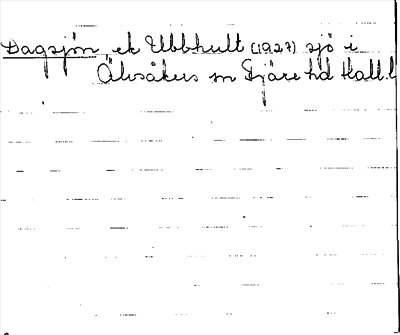 Dagsjön, ek Ubbhult (1927) sjö i
Älvsåkers sn Fjäre hd Hall.l